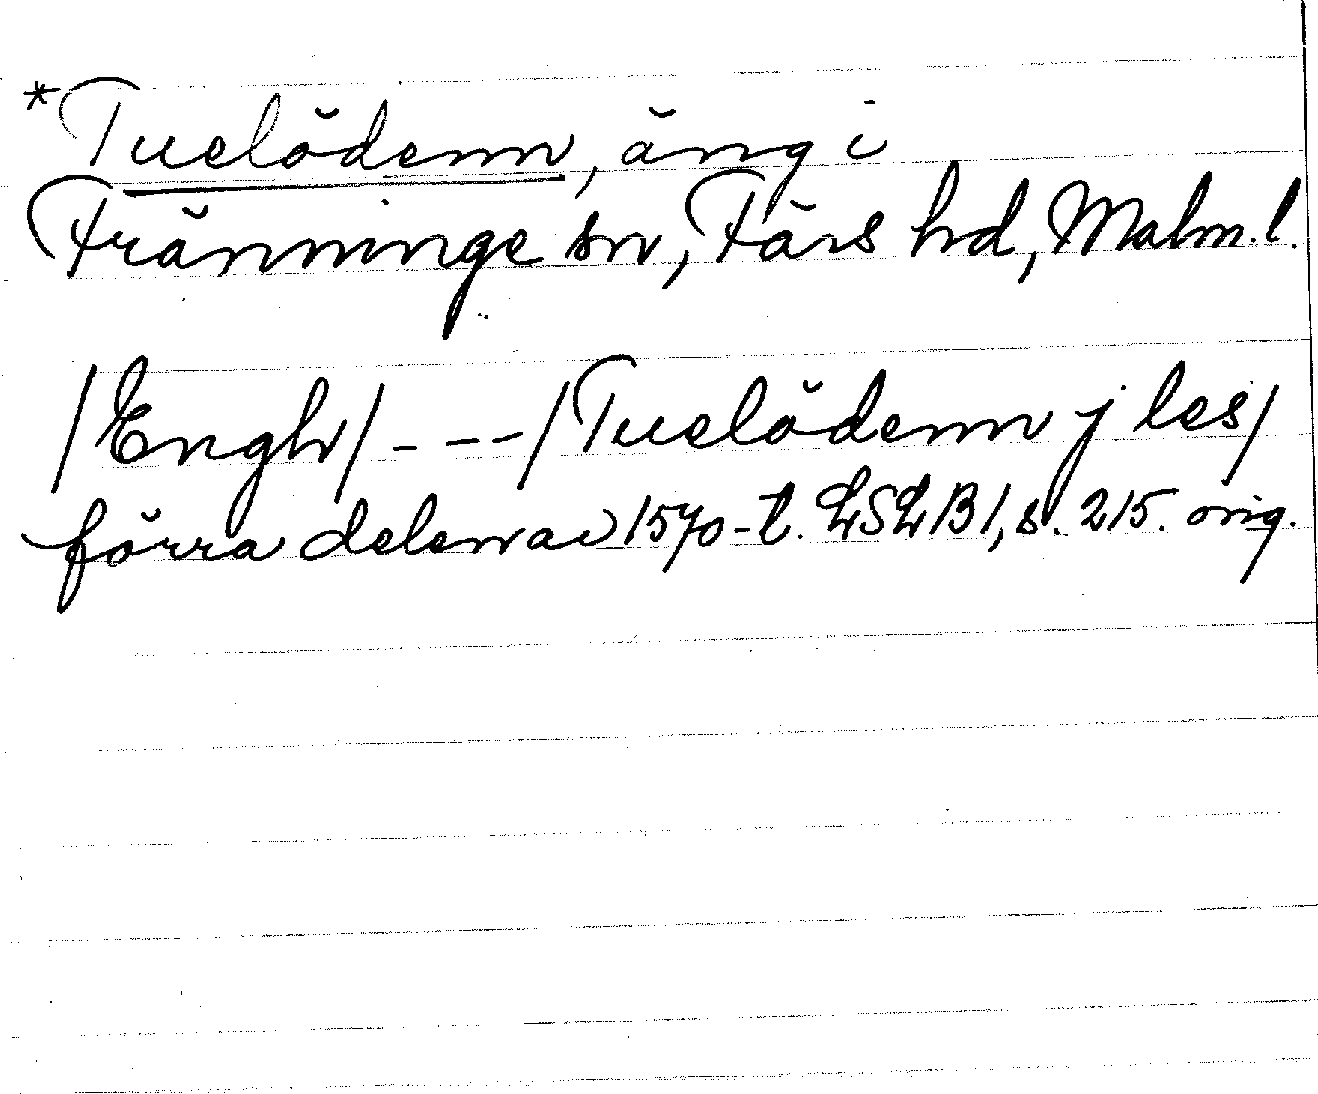 *Tuelödenn, äng i
Fränninge sn, Färs hd, Malm. l.
/Engh/ - - - /Tuelödenn j les/
förra delen av 1570-t. LSLB 1, s. 215. orig.